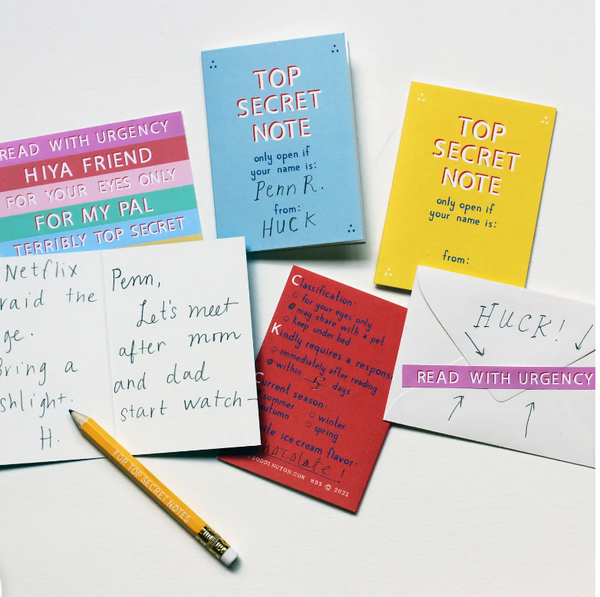 READ WITH URGENCY
HIYA FRIEND
FOR YOUR EYES ONLY
FOR MY PAL
TERRIBLY TOP SECRET
TOP
SECRET
NOTE
only open if
your name is:
Penn R.
from:
HUCK
TOP
SECRET
NOTE
only open if
your name is:
from:
Netflix
raid the
ge.
Bring a
shlight.
H.
Penn,
Let's meet
after mom
and dad
start watch-
Classification:
for your eyes only
may share with a pet
keep under bed
Kindly requires a respons
immediately after reading
within days
Current season:
summer winter
autumn spring
ice cream flavor:
chocolate!
RBS © 2021
HUCK!
READ WITH URGENCY
FOR TOP SECRET NOTES